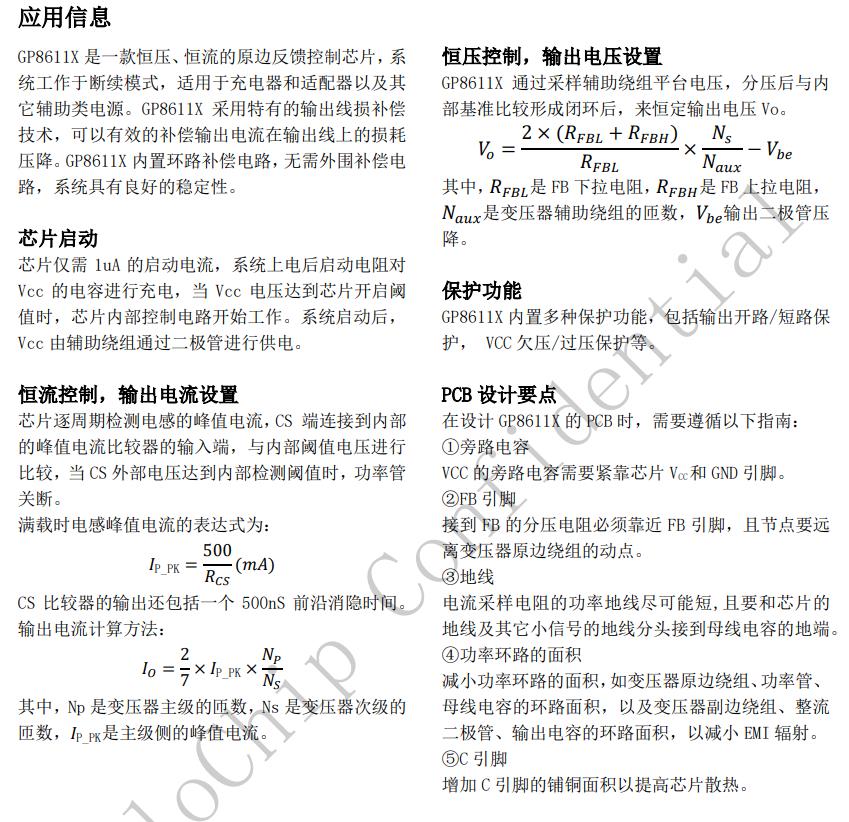 应用信息
GP8611X 是一款恒压、恒流的原边反馈控制芯片，系
统工作于断续模式，适用于充电器和适配器以及其
它辅助类电源。GP8611X 采用特有的输出线损补偿
技术，可以有效的补偿输出电流在输出线上的损耗
压降。GP8611X 内置环路补偿电路，无需外围补偿电
路，系统具有良好的稳定性。
芯片启动
芯片仅需 1uA 的启动电流，系统上电后启动电阻对
Vcc 的电容进行充电，当 Vcc 电压达到芯片开启阈
值时，芯片内部控制电路开始工作。系统启动后，
Vcc 由辅助绕组通过二极管进行供电。
恒流控制，输出电流设置
芯片逐周期检测电感的峰值电流，CS 端连接到内部
的峰值电流比较器的输入端，与内部阈值电压进行
比较，当 CS 外部电压达到内部检测阈值时，功率管
关断。
满载时电感峰值电流的表达式为：
I_{P_PK} = 500/R_{CS} (mA)
CS 比较器的输出还包括一个 500nS 前沿消隐时间。
输出电流计算方法：
I_O = 2/7 × I_{P_PK} × N_P/N_S
其中，Np 是变压器主级的匝数，Ns 是变压器次级的
匝数，I_{P_PK}是主级侧的峰值电流。
恒压控制，输出电压设置
GP8611X 通过采样辅助绕组平台电压，分压后与内
部基准比较形成闭环后，来恒定输出电压 Vo。
V_o = 2 × (R_{FBL} + R_{FBH})/R_{FBL} × N_s/N_{aux} − V_{be}
其中，R_{FBL}是 FB 下拉电阻，R_{FBH}是 FB 上拉电阻，
N_{aux}是变压器辅助绕组的匝数，V_{be}输出二极管压
降。
保护功能
GP8611X 内置多种保护功能，包括输出开路/短路保
护， VCC 欠压/过压保护等。
PCB 设计要点
在设计 GP8611X 的 PCB 时，需要遵循以下指南：
①旁路电容
VCC 的旁路电容需要紧靠芯片 V_{CC}和 GND 引脚。
②FB 引脚
接到 FB 的分压电阻必须靠近 FB 引脚，且节点要远
离变压器原边绕组的动点。
③地线
电流采样电阻的功率地线尽可能短,且要和芯片的
地线及其它小信号的地线分头接到母线电容的地端。
④功率环路的面积
减小功率环路的面积，如变压器原边绕组、功率管、
母线电容的环路面积，以及变压器副边绕组、整流
二极管、输出电容的环路面积，以减小 EMI 辐射。
⑤C 引脚
增加 C 引脚的铺铜面积以提高芯片散热。
loChip Confidential